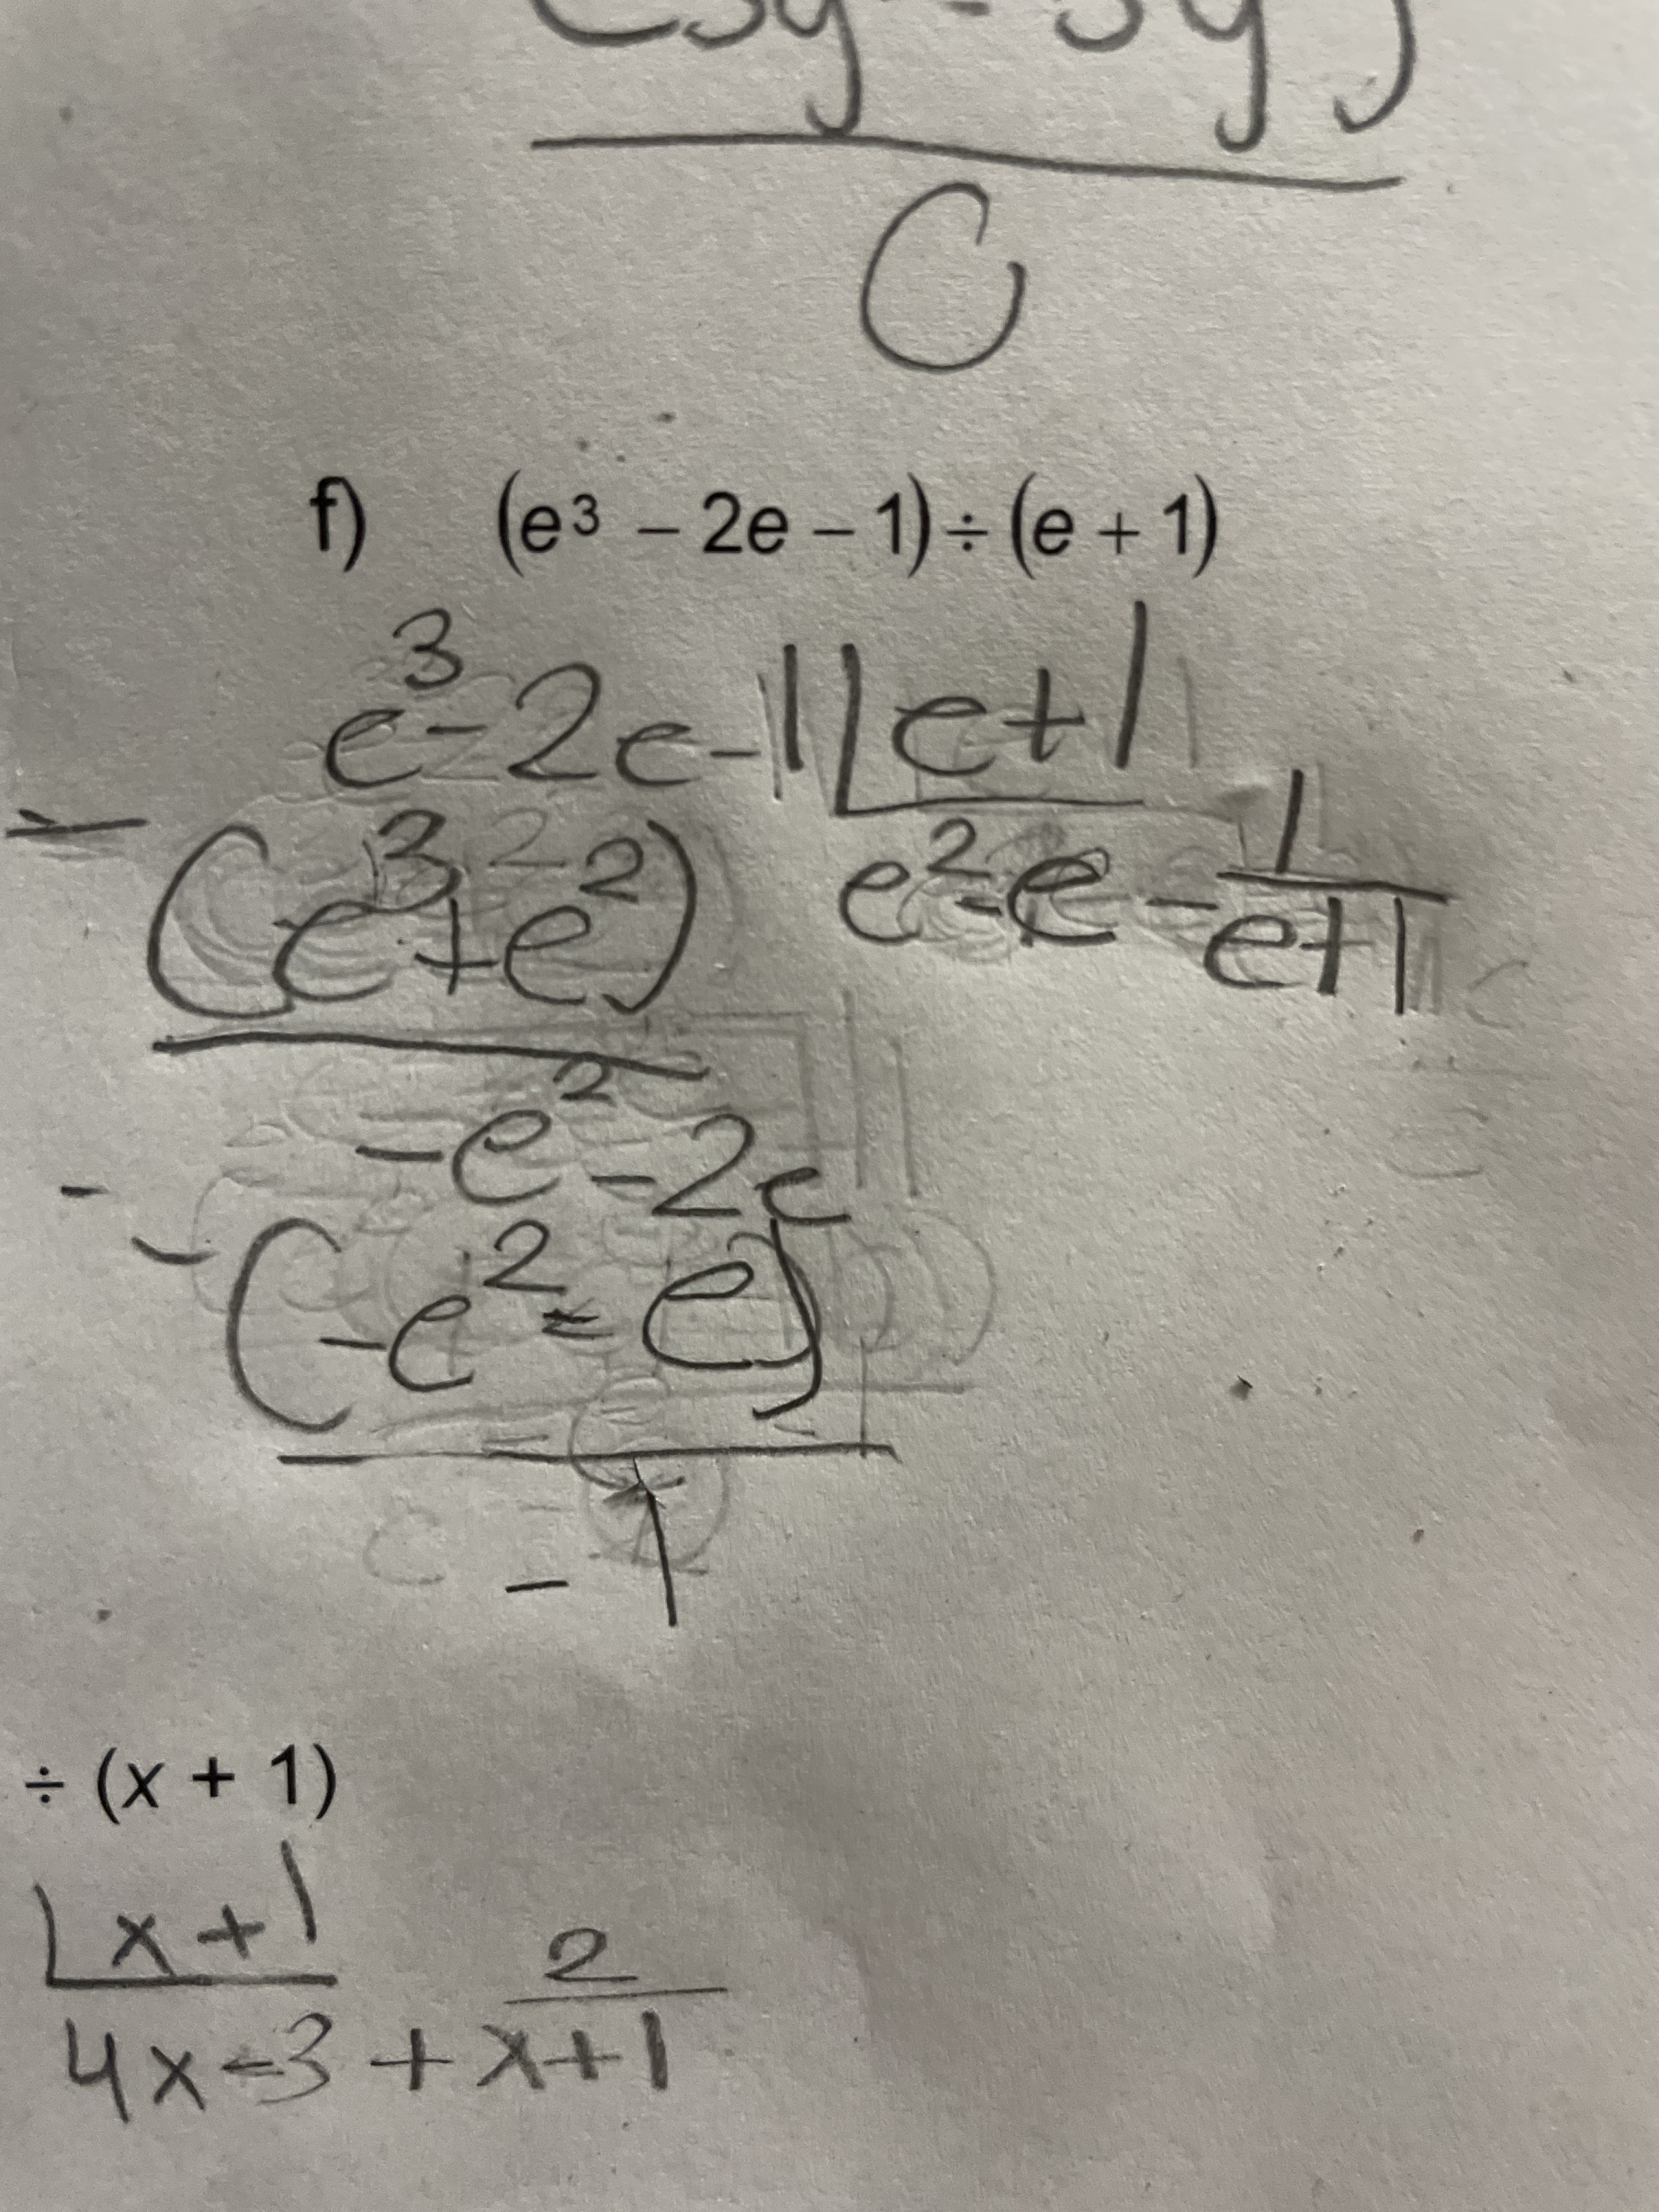 0
f) (e³ − 2e − 1) ÷ (e + 1)
e³ - 2e - 1 | e + 1
- (e³ + e²) e² - e - 1/(e+1)
-e² - 2e
- (-e² - e)
- 1
÷ (x + 1)
x + 1
4x - 3 + 2/(x+1)